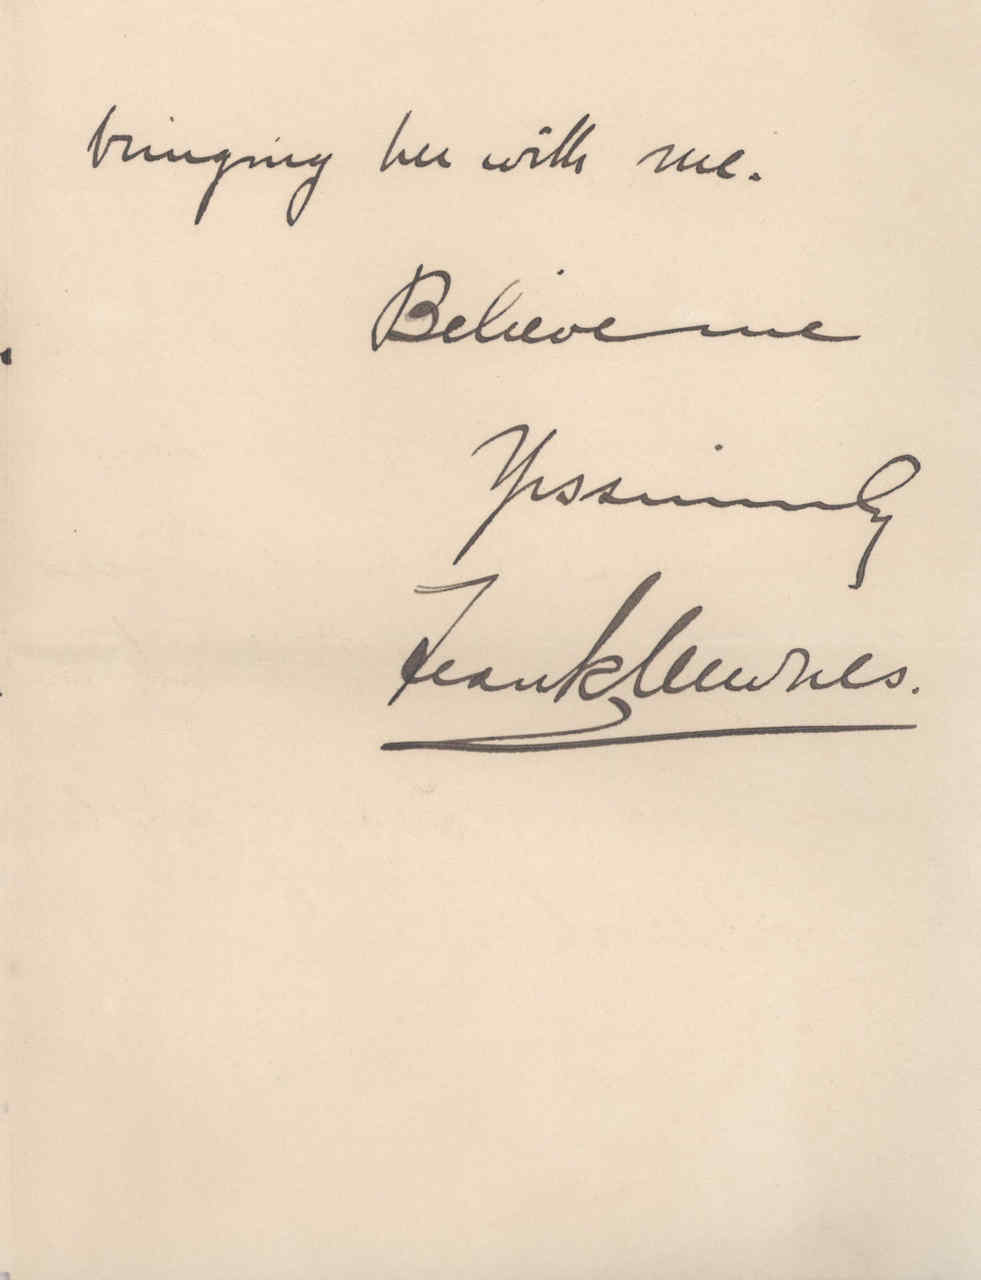 bringing her with me.
Believe me
Yrs sincerely
Frank Newnes.